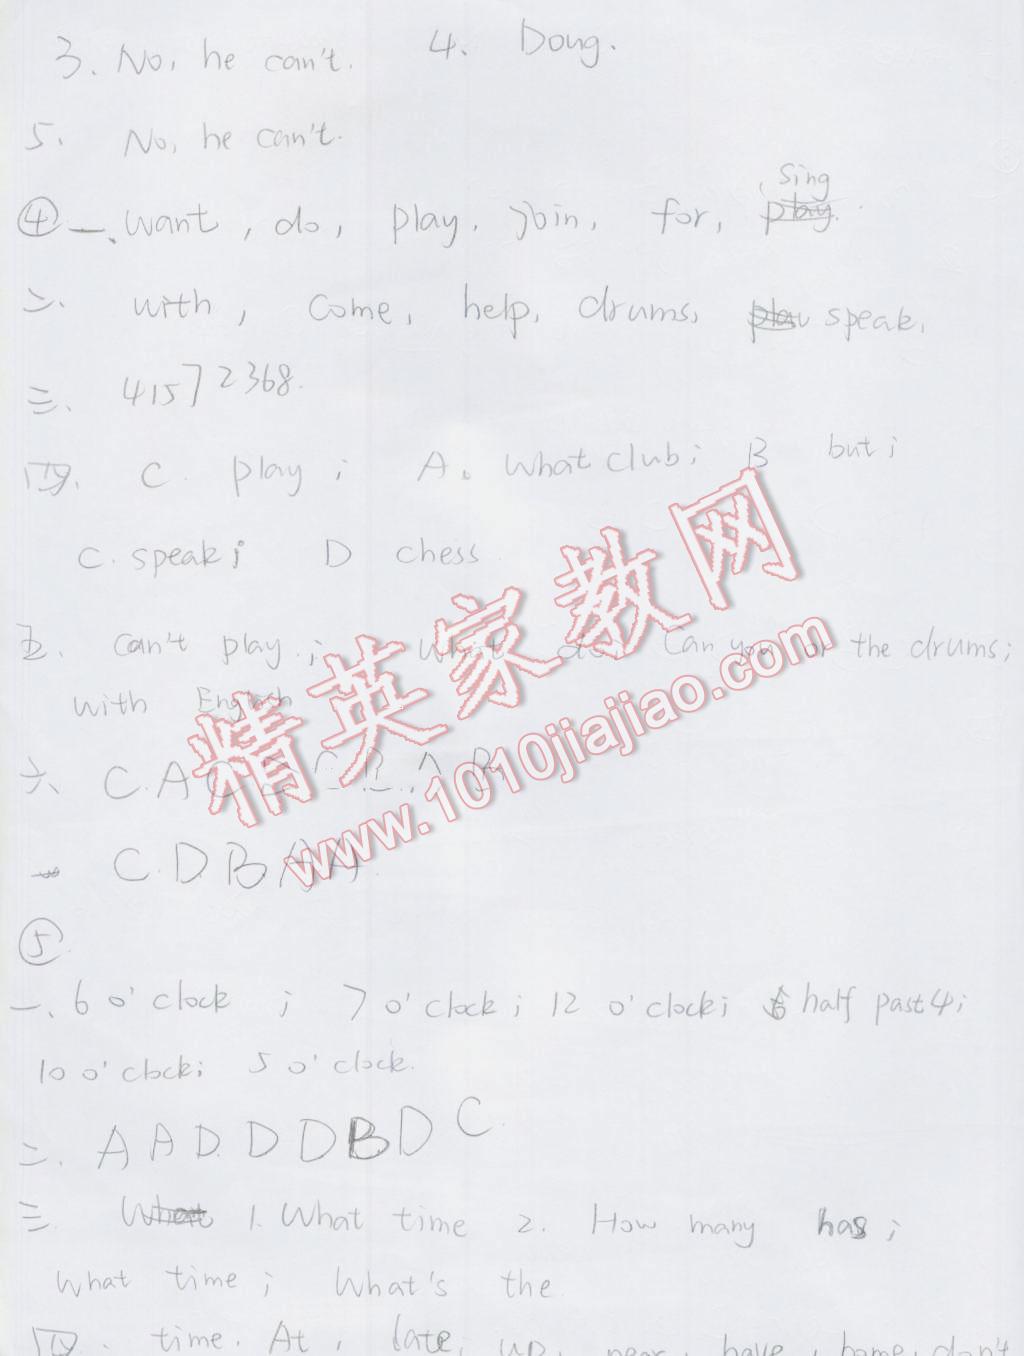 3. No, he can't. 4. Dong.
5. No, he can't.
sing
④一、want, do, play, join, for, play.
二、with, come, help, drums, play speak,
三、41572368.
四、C. play; A. What club; B but;
C. speak; D chess.
五、can't play; What do Can you or the drums;
with English
六 C.A C B A B
一 C.D B A A.
⑤
一、6 o'clock; 7 o'clock; 12 o'clock; half past 4;
10 o'clock; 5 o'clock.
二、A A D. D D B D C.
三. What 1. What time 2. How many has;
What time; What's the
四. time. At, late, up, near, have, home, don't
精英家教网
www.1010jiajiao.com